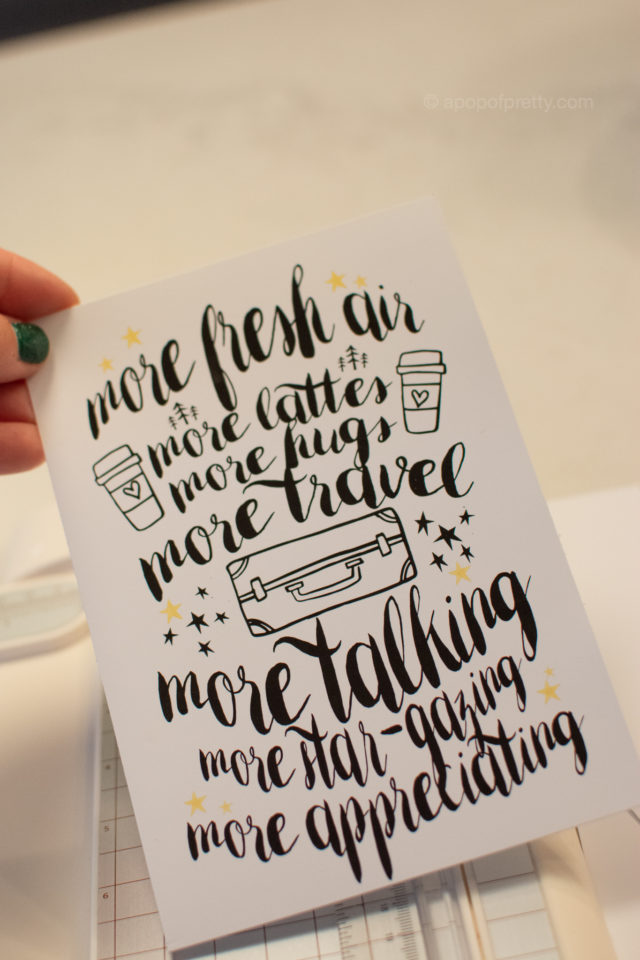 © apopofpretty.com
more fresh air
more lattes
more hugs
more travel
more talking
more star-gazing
more appreciating
5
6